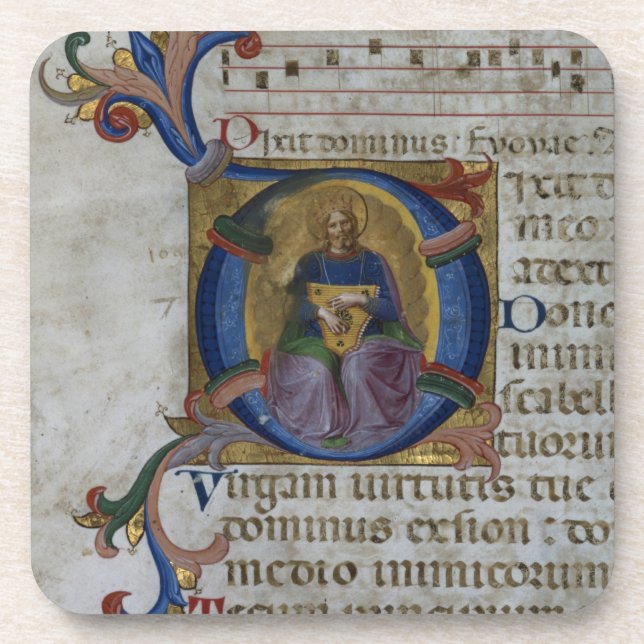 Dixit dominus: Evovae.
ixit d
meo
adext
Done
inimi
scabell
tuorum
Virgam virtutis tue
dominus exsion: do
medio inimicorum
Tecum